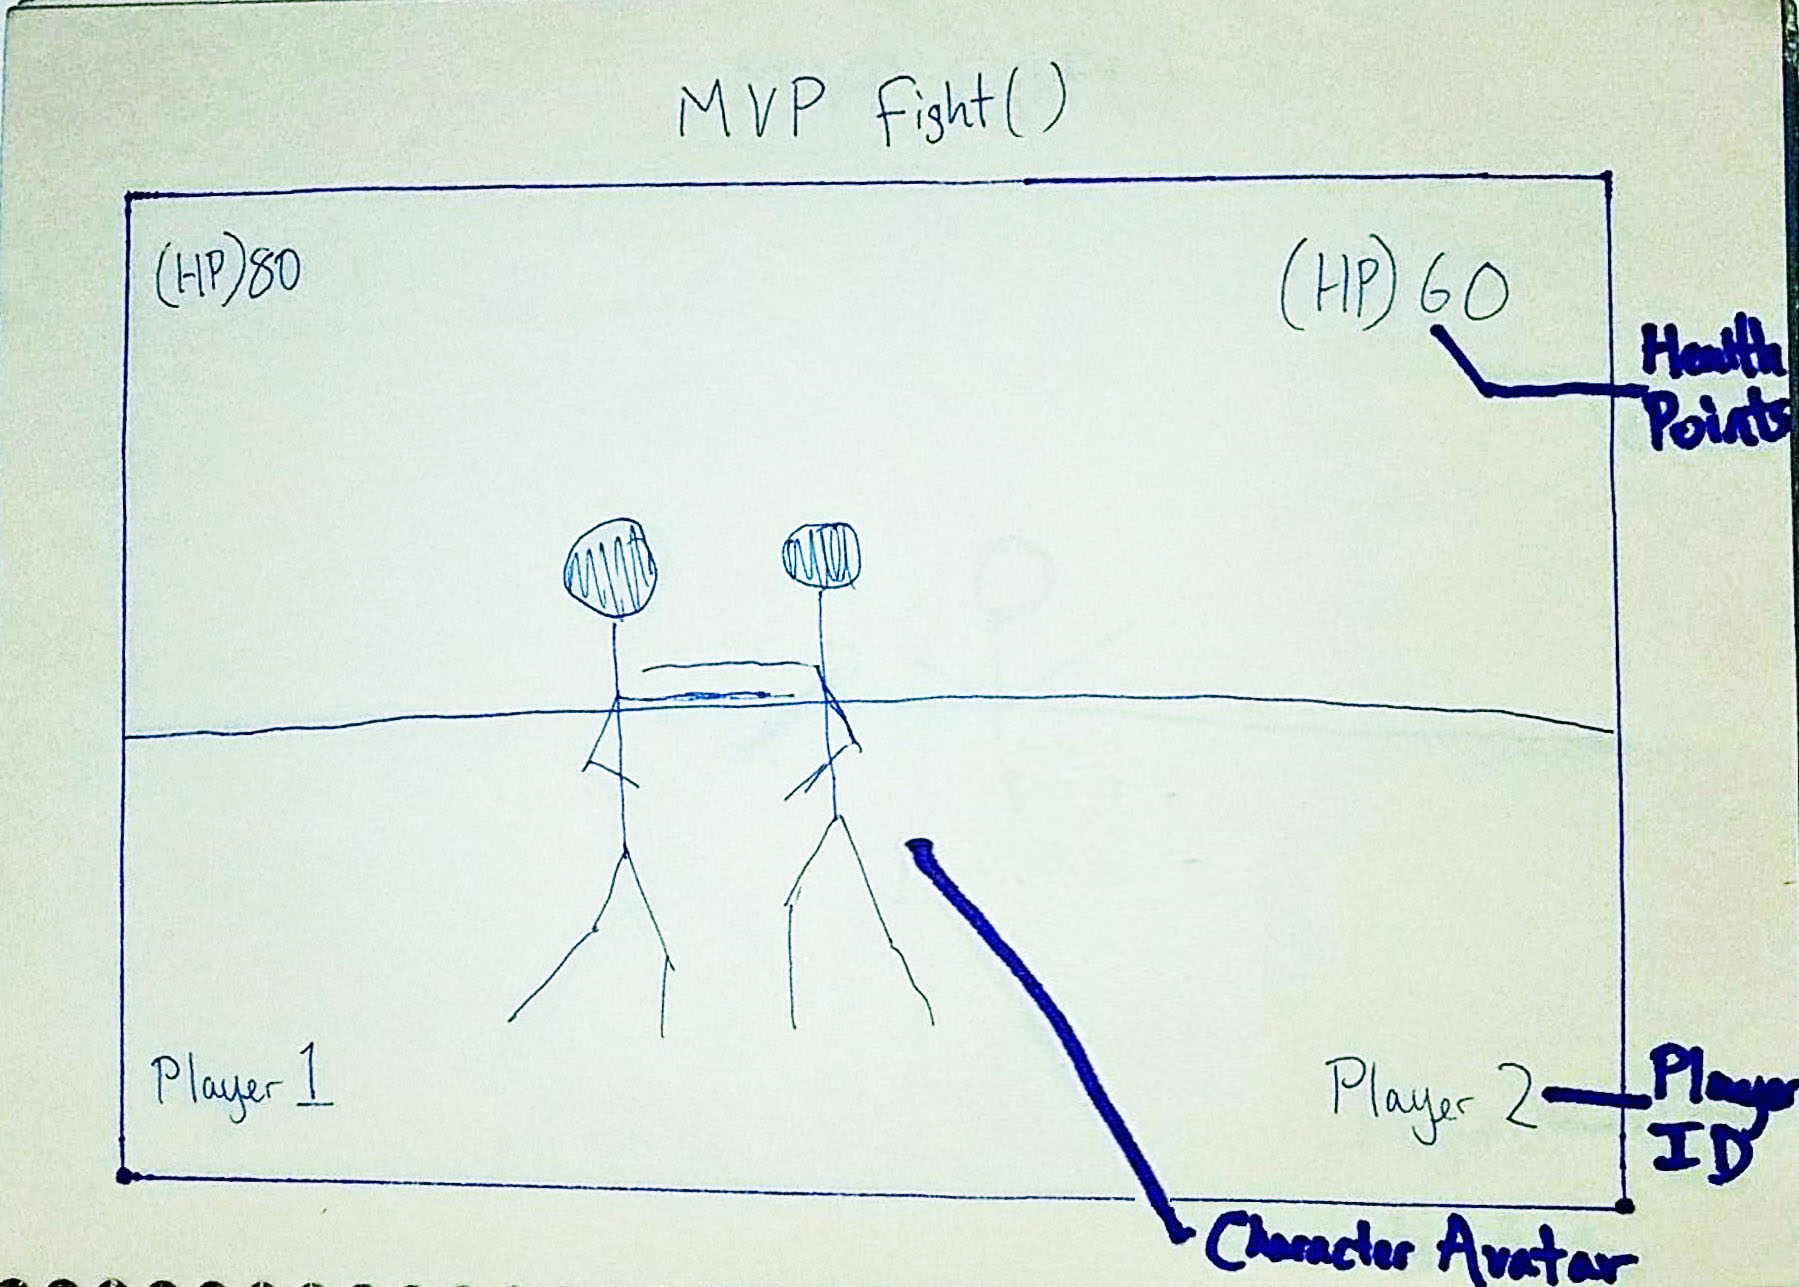 MVP Fight()
(HP)80
(HP) 60
Health
Points
Player 1
Player 2
Player
ID
Character Avatar